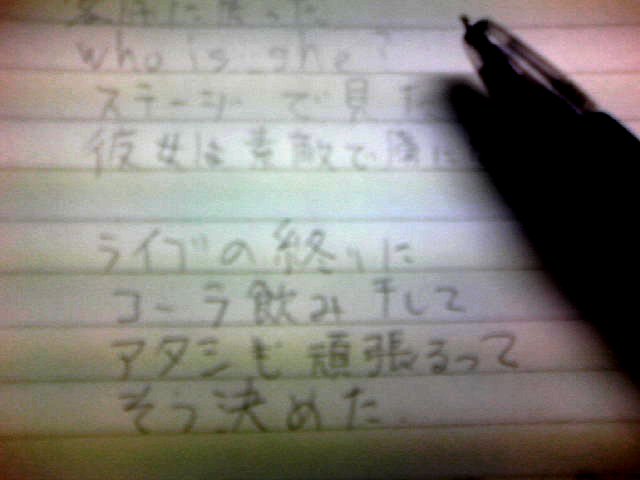 who is she?
ステージで見た
彼女は素敵で
ライブの終りに
コーラ飲み干して
アタシも頑張るって
そう決めた